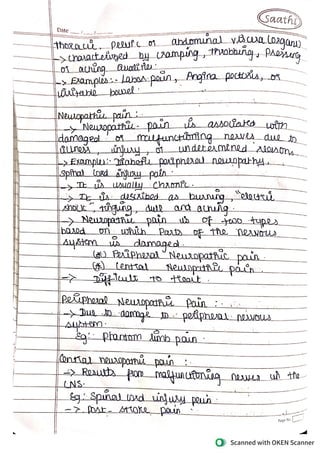 Saathi
Date
thoracic, pelvic or abdominal viscera (organs)
-> characterized by cramping, throbbing, pressing
or aching qualities.
-> Examples:- Labor pain, Angina pectoris, or
irritable bowel.
Neuropathic pain :
-> Neuropathic pain is associated with
damaged or malfunctioning nerves due to
illness, injury, or undetermined reasons.
-> Examples:- Diabetic peripheral neuropathy,
Spinal cord injury pain.
-> It is usually chronic.
-> It is described as burning, "electric
shock", tinging, dull and aching.
-> Neuropathic pain is of two types
based on which parts of the nervous
system is damaged.
(a) Peripheral Neuropathic pain
(b) Central Neuropathic pain.
-> Difficult to treat.
Peripheral Neuropathic Pain :
-> Due to damage to peripheral nervous
system.
Eg: phantom limb pain.
Central neuropathic pain :
-> Results from malfunctioning nerves in the
CNS.
Eg: Spinal cord injury pain
-> post-stroke pain.
Page No.
Scanned with OKEN Scanner